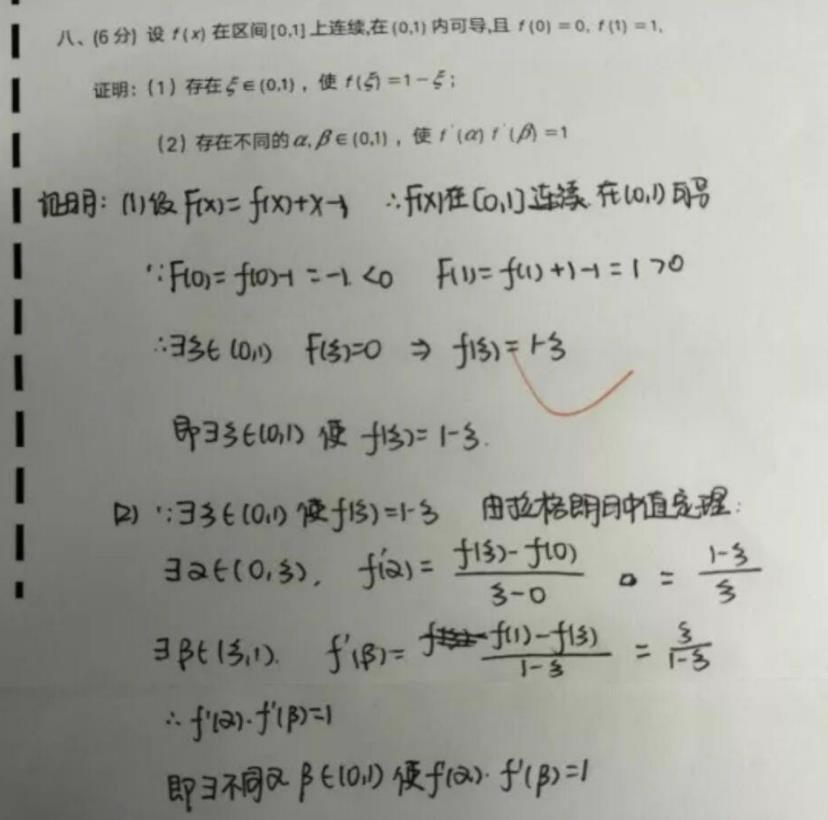 八、(6分) 设 f(x) 在区间[0,1]上连续,在(0,1)内可导,且 f(0)=0, f(1)=1,
证明:(1) 存在 ξ∈(0,1), 使 f(ξ)=1-ξ;
(2) 存在不同的 α,β∈(0,1), 使 f'(α) f'(β)=1
证明: (1)设 F(x)=f(x)+x-1 ∴F(x)在[0,1]连续 在(0,1)可导
∵F(0)=f(0)-1=-1<0 F(1)=f(1)+1-1=1>0
∴∃ξ∈(0,1) F(ξ)=0 ⇒ f(ξ)=1-ξ
即∃ξ∈(0,1) 使 f(ξ)=1-ξ.
(2) ∵∃ξ∈(0,1) 使f(ξ)=1-ξ 由拉格朗日中值定理:
∃α∈(0,ξ), f'(α)= (f(ξ)-f(0))/(ξ-0) = (1-ξ)/ξ
∃β∈(ξ,1). f'(β)= (f(1)-f(ξ))/(1-ξ) = ξ/(1-ξ)
∴ f'(α)·f'(β)=1
即∃不同α β∈(0,1) 使f'(α)·f'(β)=1